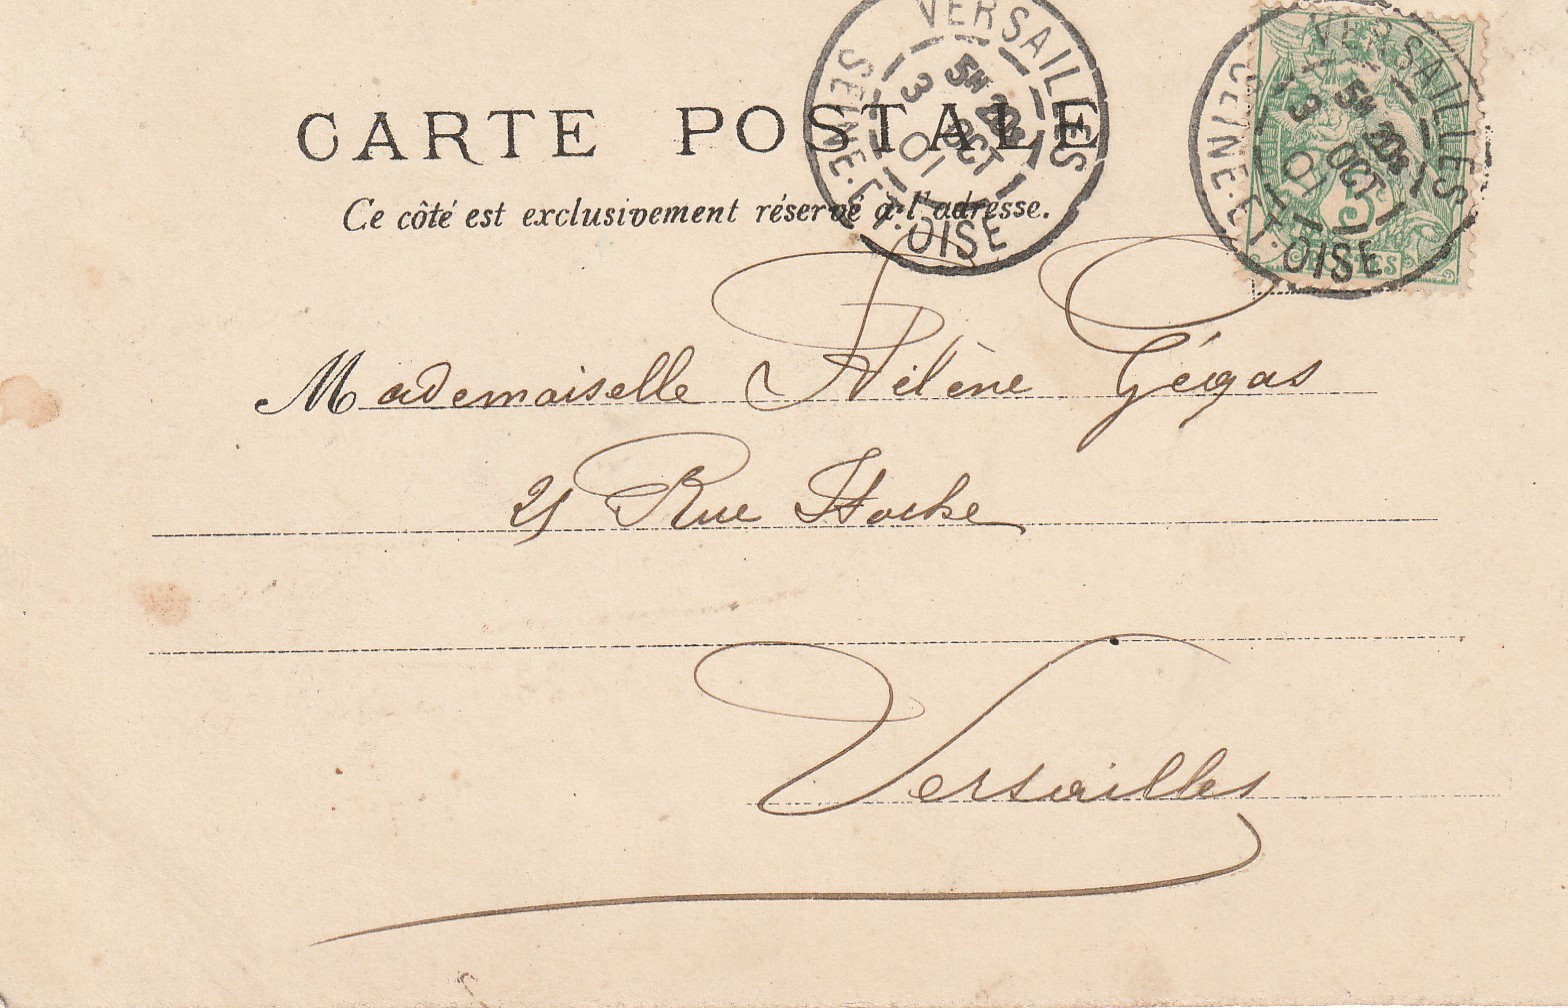 VERSAILLES
5H 20M
3 OCT
01
SEINE-ET-OISE
VERSAILLES
5H 20M
3 OCT
01
SEINE-ET-OISE
5
CARTE POSTALE
Ce côté est exclusivement réservé à l'adresse.
Mademoiselle Hélène Gégas
Rue Hoche
Versailles